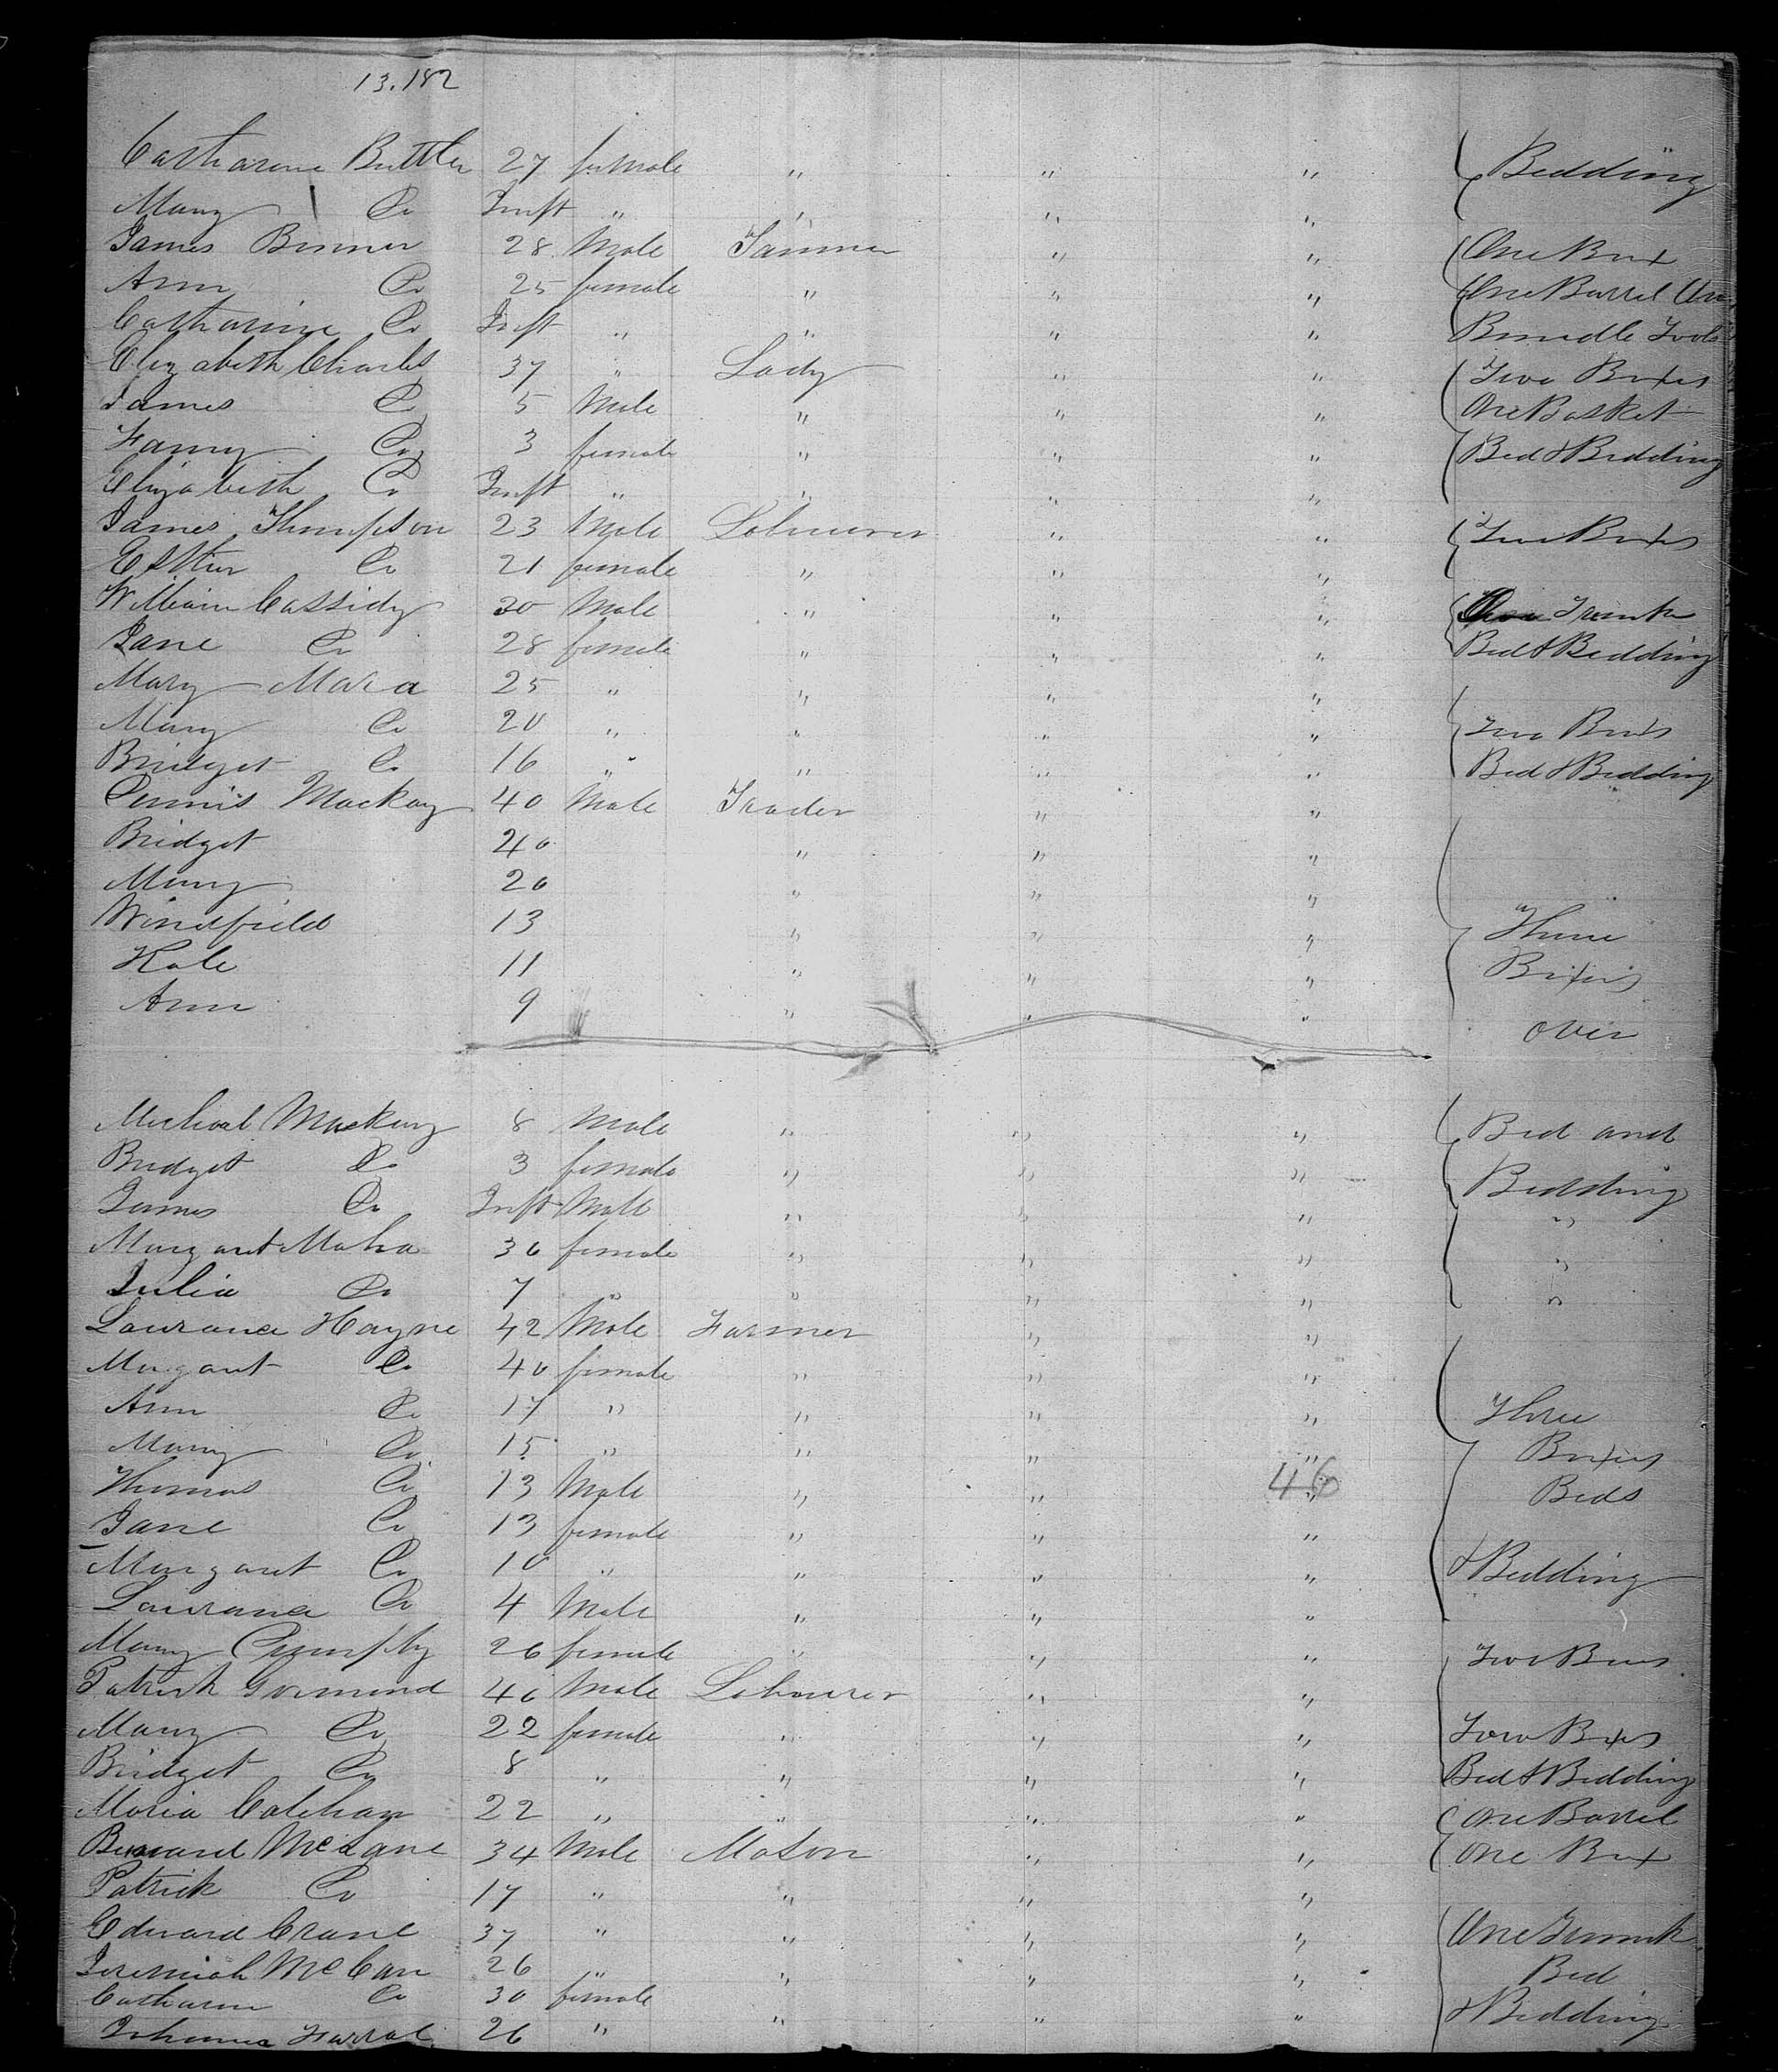 13.182
Catharine Buttler 27 female " " " Bedding
Mary Do Inft " " " "
James Bonner 28 Male Farmer " " One Box
Ann Do 25 female " " " One Barrel One
Catharine Do Inft " " " " Bundle Tools
Elizabeth Charles 37 " Lady " " Two Boxes
James Do 5 Male " " " One Basket
Fanny Do 3 female " " " Bed & Bedding
Elizabeth Do Inft " " " "
James Thompson 23 Male Labourer " " Two Boxes
Esther Do 21 female " " "
William Cassidy 30 Male " " " Trunk
Jane Do 28 female " " " Bed & Bedding
Mary Mara 25 " " " "
Mary Do 20 " " " " Two Boxes
Bridget Do 16 " " " " Bed & Bedding
Dennis Mackay 40 Male Trader " "
Bridget 40 " " "
Mary 20 " " "
Windfield 13 " " " Three
Kate 11 " " " Boxes
Ann 9 " " " over
Micheal Mackay 8 Male " " " Bed and
Bridget Do 3 female " " " Bedding
James Do Inft Male " " " "
Margaret Maha 30 female " " " "
Julia Do 7 " " " " "
Laurance Hayne 42 Male Farmer " "
Margaret Do 40 female " " "
Ann Do 17 " " " " Three
Mary Do 15 " " " " Boxes
Thomas Do 13 Male " " 46 " Beds
Jane Do 13 female " " "
Margaret Do 10 " " " " & Bedding
Laurance Do 4 Male " " "
Mary 26 female " " " Two Boxes
Patrick Gormond 40 Male Labourer " "
Mary Do 22 female " " " Two Boxes
Bridget Do 8 " " " " Bed & Bedding
Maria Calehan 22 " " " " One Barrel
Bernard McLane 34 Male Mason " " One Box
Patrick Do 17 " " " "
Edward Crane 37 " " " " One Trunk
Jeremiah McCan 26 " " " " Bed
Catharine Do 30 female " " " & Bedding
Johanna Farral 26 "